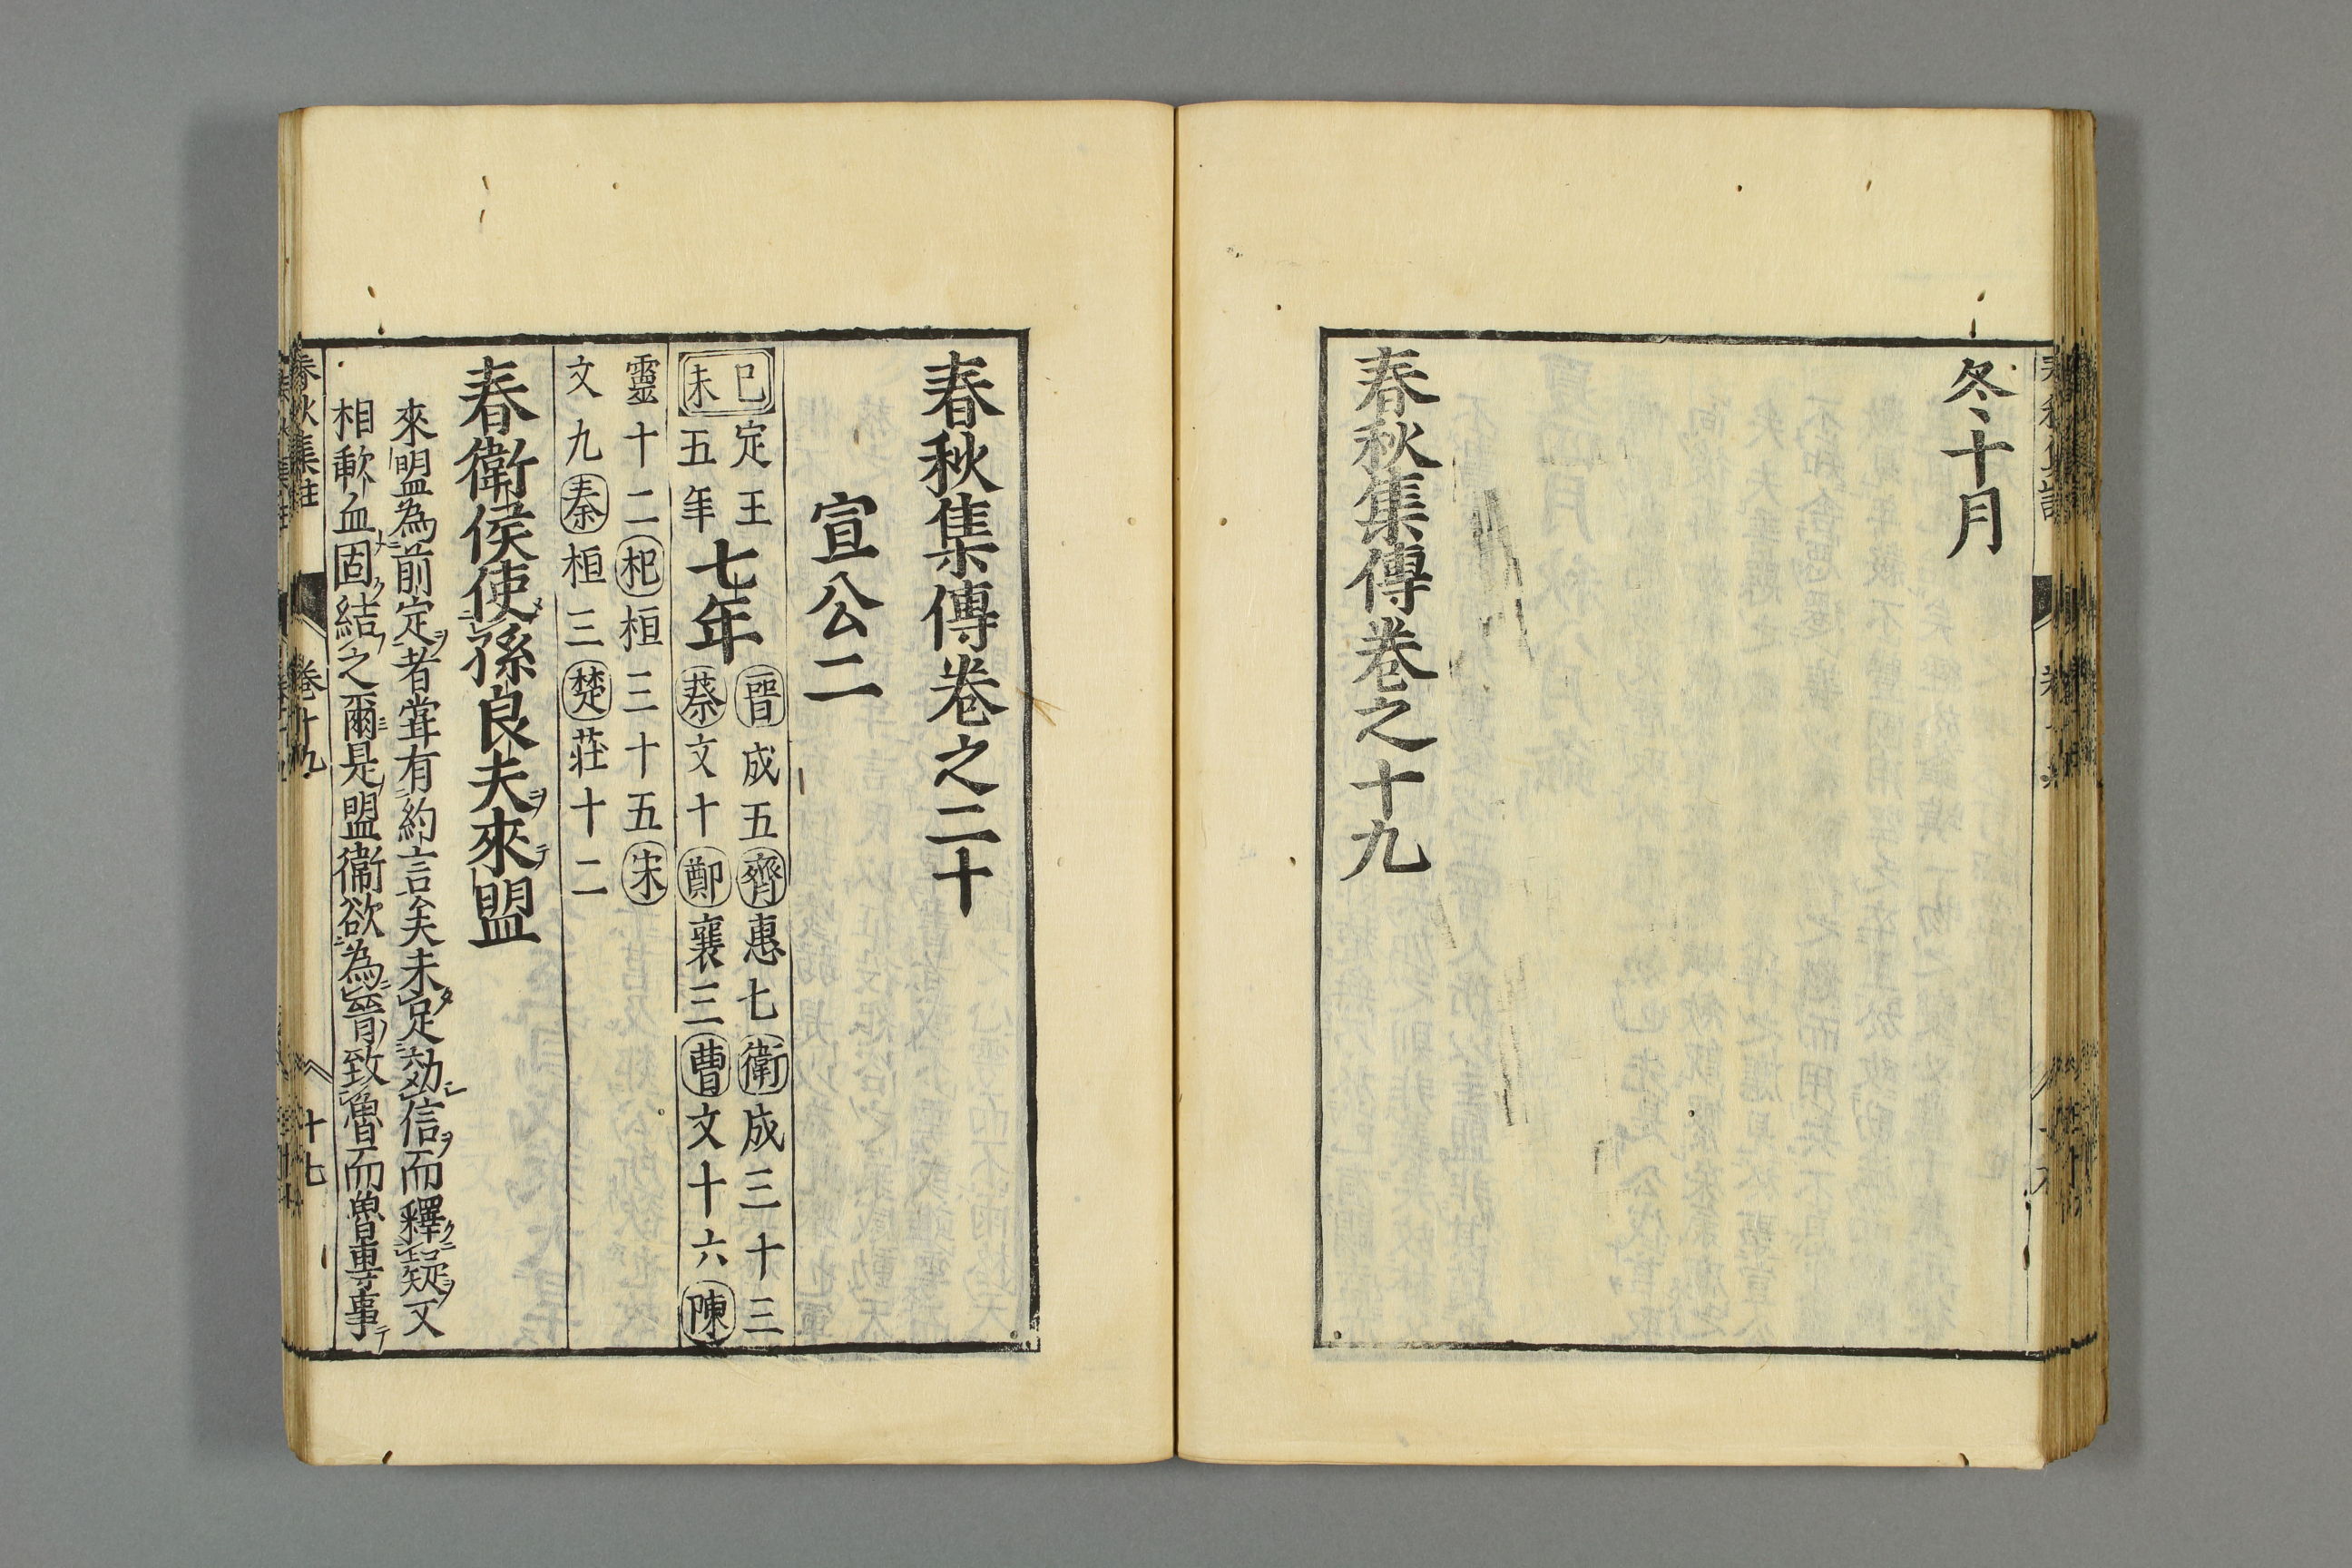 冬十月
春秋集傳卷之十九
春秋集傳卷之二十
宣公二
己未 定王五年 七年 晉成五 齊惠七 衛成三十三 蔡文十 鄭襄三 曹文十六 陳
靈十二 杞桓三十五 宋文九 秦桓三 楚莊十二
春衛侯使孫良夫來盟
來盟為前定者甞有約言矣未足効信而釋疑又
相歃血固結之爾是盟衞欲為晉致魯而魯專事
春秋集註 卷十九 十七